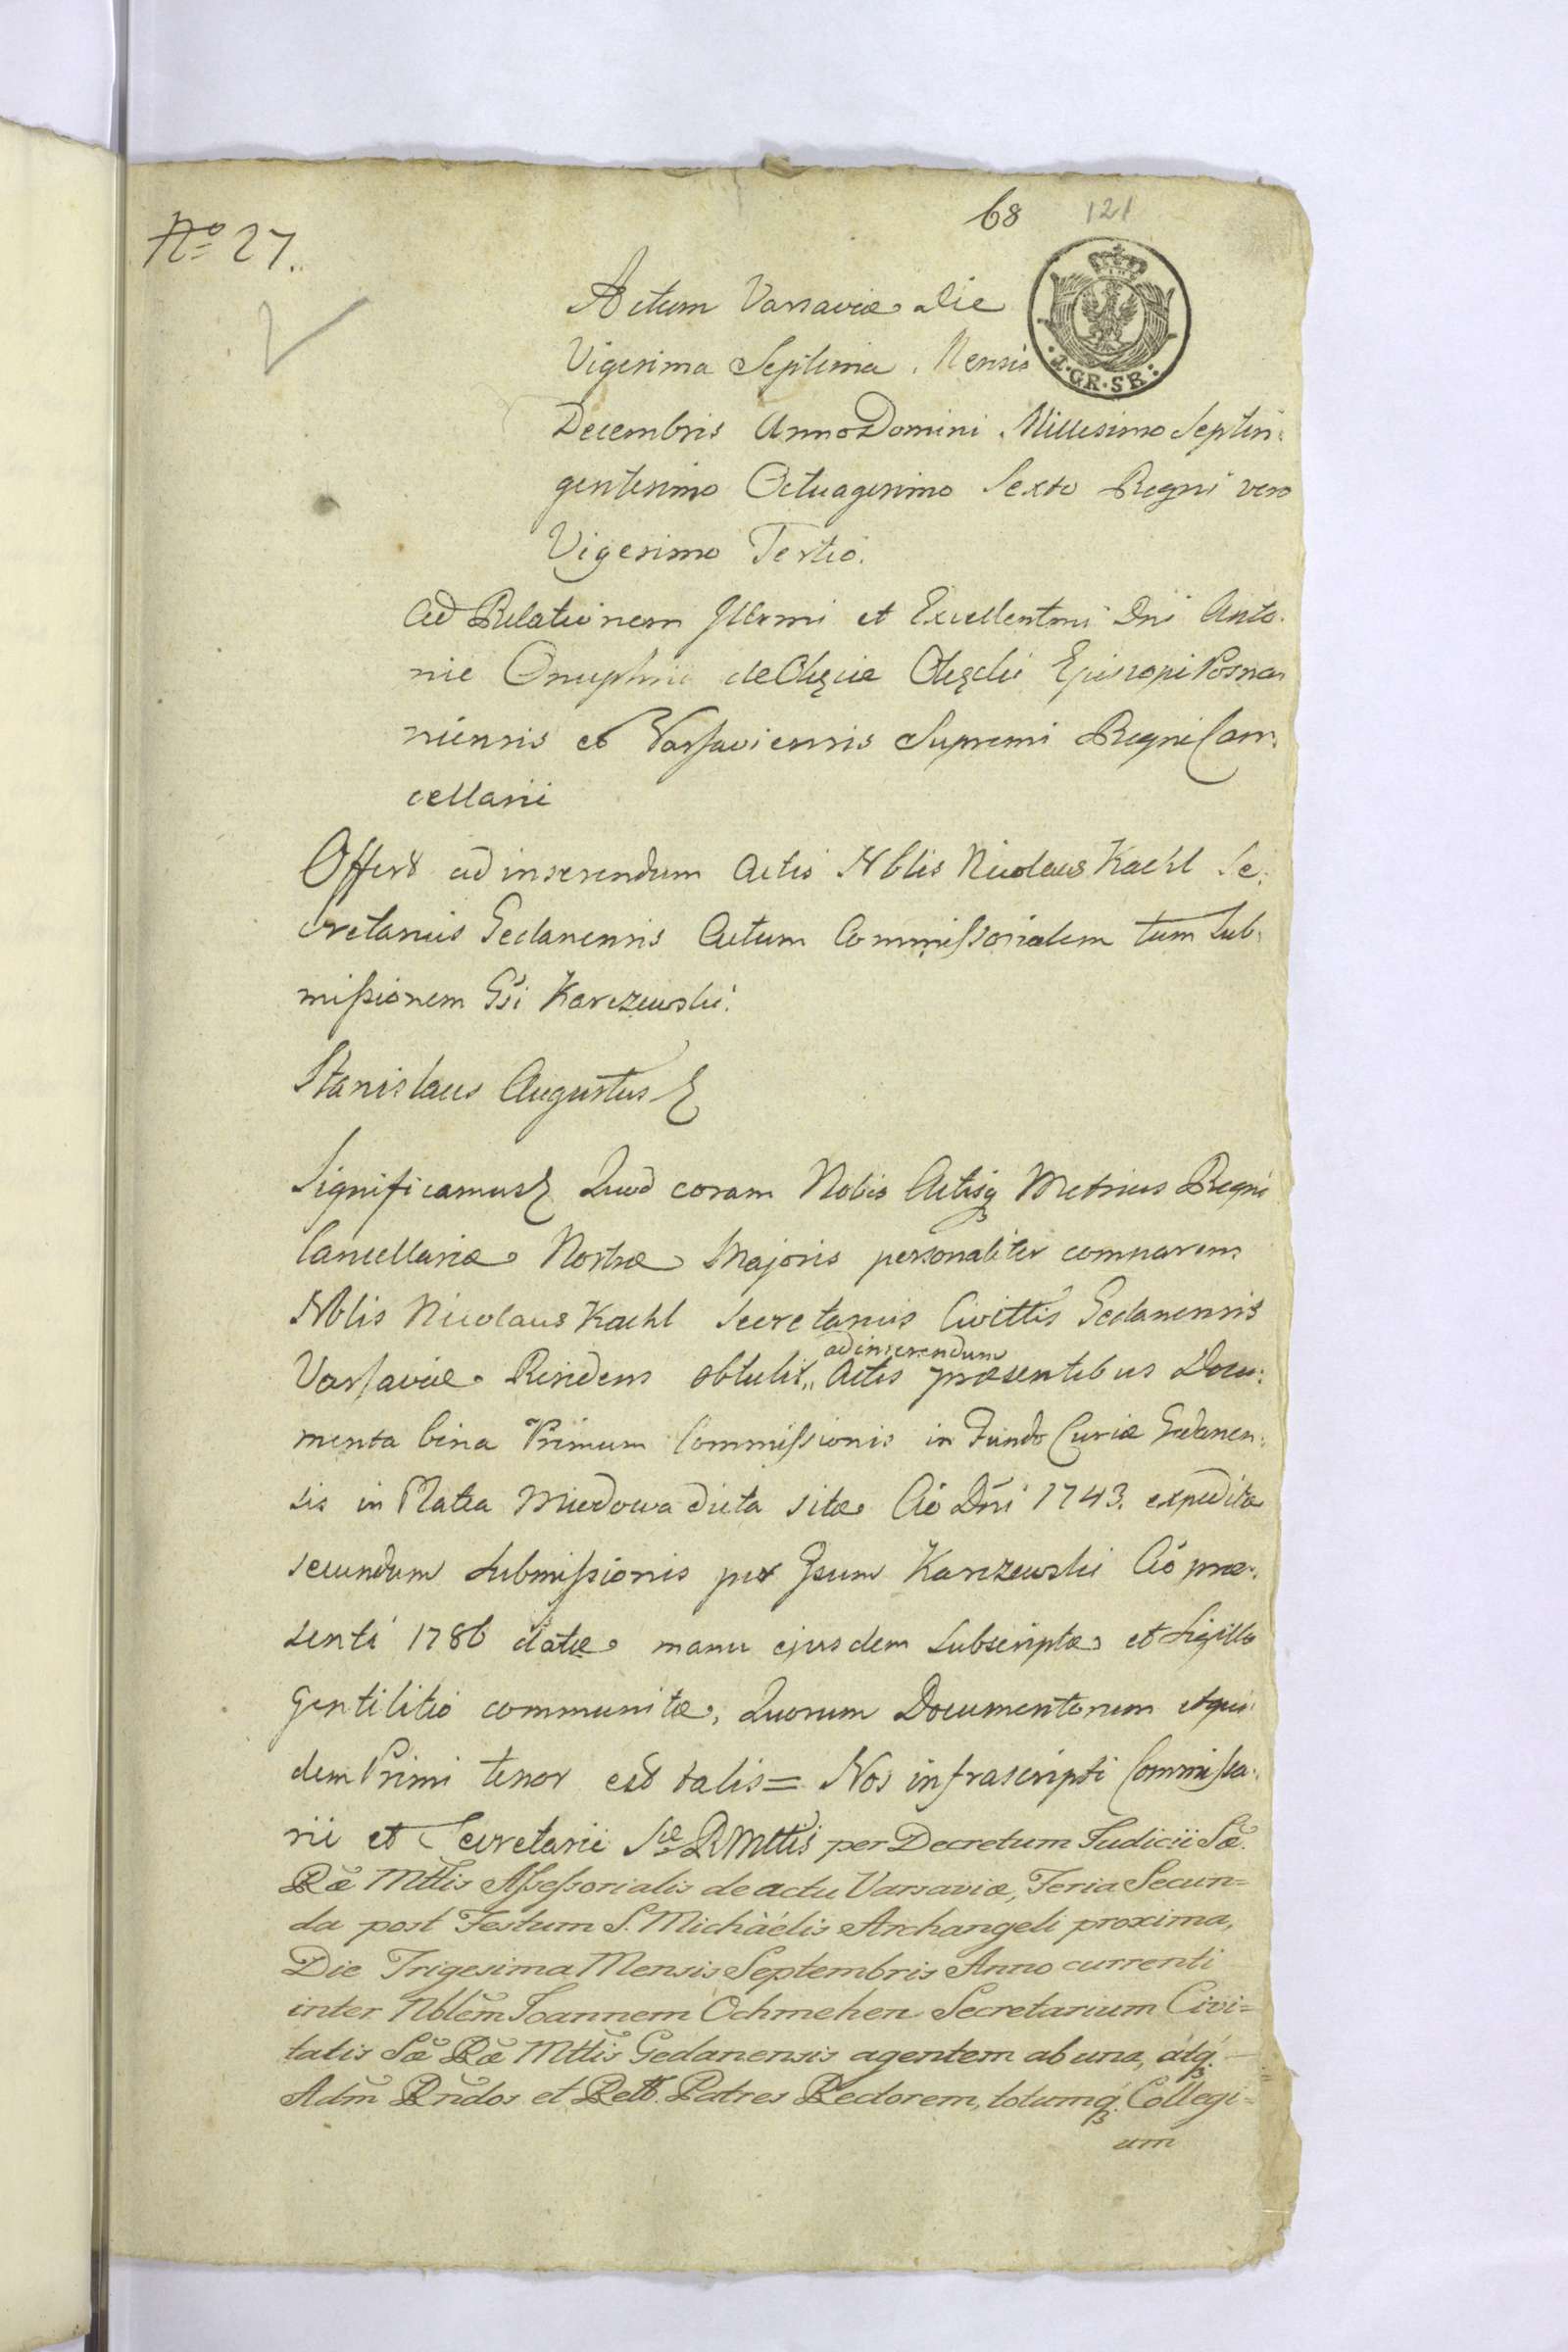 68 121
No 27.
Actum Varsaviæ die
Vigesima Septima Mensis
I. GR. SR:
Decembris Anno Domini Millesimo Septin:
gentesimo Octuagesimo Sexto Regni vero
Vigesimo Tertio.
Ad Relationem Illrmi et Excellentmi Dni Anto:
nii Onuphrii de Okęcie Okęcki Episcopi Posna:
niensis et Varsaviensis Supremi Regni Can:
cellarii
Offert ad inserendum Actis Nblis Nicolaus Kaehl Se:
cretarius Gedanensis Actum Commissorialem tum Sub:
missionem Gsi Karczewski.
Stanislaus Augustus
Significamus Quod coram Nobis Actisq Metrices Regni
Cancellariæ Nostræ Majoris personaliter comparens
Nblis Nicolaus Kaehl Secretarius Civittis Gedanensis
ad inserendum
Varsaviæ Residens obtulit,, Actis præsentibus Docu:
menta bina Primum Commissionis in Fundo Curiæ Gedanen:
sis in Platea Miodowa dicta sitæ Aó Dñi 1743. expeditæ
secundum Submissionis per Gsum Karczewski Aó præ:
senti 1786 datæ manu ejusdem subscriptæ et Sigillo
Gentilitio communitæ, Quorum Documentorum etqui:
dem Primi tenor est talis = Nos infrascripti Commissa:
rii et Secretarii Sæ R Mttis per Decretum Judicii Sæ.
Ræ Mttis Assessorialis de actu Varsaviæ, Feria Secun=
da post Festum S. Michaëlis Archangeli proxima,
Die Trigesima Mensis Septembris Anno currenti
inter Nblem Joannem Ochmehen Secretarium Civi=
tatis Sæ Ræ Mttis Gedanensis agentem ab una, átq.
Adm̃ Rñdos et Rell. Patres Rectorem, totumq. Collegi=
um